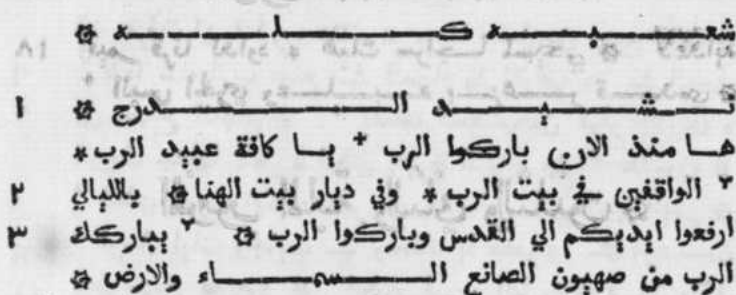 شعبه كله ۞
نشيد الدرج ۞ ١
ها منذ الان باركوا الرب * يا كافة عبيد الرب *
الواقفين في بيت الرب * وفي ديار بيت الهنا ۞ بالليالي ٢
ارفعوا ايديكم الي القدس وباركوا الرب ۞ يباركك ٣
الرب من صهيون الصانع السماء والارض ۞